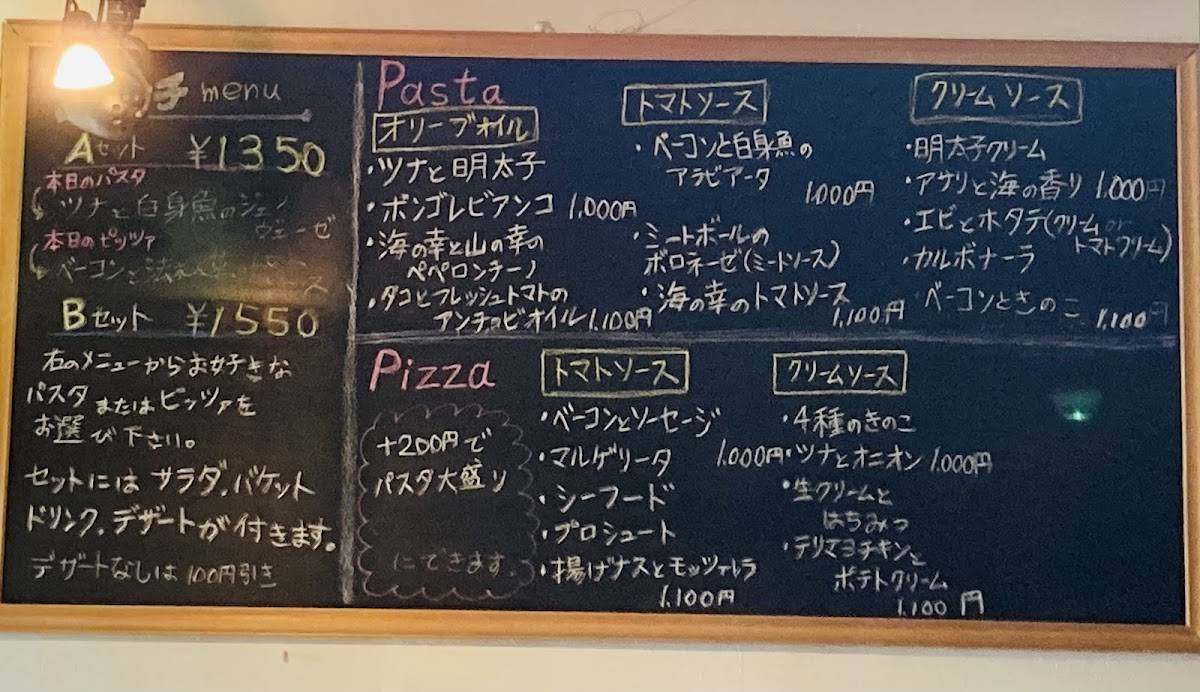 menu
Aセット ¥1350
本日のパスタ
ツナと白身魚のジェノ
ヴェーゼ
本日のピッツァ
ベーコンと
ース
Bセット ¥1550
右のメニューからお好きな
パスタまたはピッツァを
お選び下さい。
セットにはサラダ、バケット
ドリンク、デザートが付きます。
デザートなしは100円引き
Pasta
オリーブオイル
・ツナと明太子
・ボンゴレビアンコ 1,000円
・海の幸と山の幸の
ペペロンチーノ
・タコとフレッシュトマトの
アンチョビオイル 1,100円
トマトソース
・ベーコンと白身魚の
アラビアータ
1,000円
・ミートボールの
ボロネーゼ(ミートソース)
・海の幸のトマトソース
1,100円
クリームソース
・明太子クリーム
・アサリと海の香り 1,000円
・エビとホタテ(クリームor
トマトクリーム)
・カルボナーラ
・ベーコンときのこ 1,100円
Pizza
+200円で
パスタ大盛り
にできます。
トマトソース
・ベーコンとソーセージ
・マルゲリータ 1,000円
・シーフード
・プロシュート
・揚げナスとモッツァレラ
1,100円
クリームソース
・4種のきのこ
・ツナとオニオン 1,000円
・生クリームと
はちみつ
・テリマヨチキンと
ポテトクリーム
1,100円